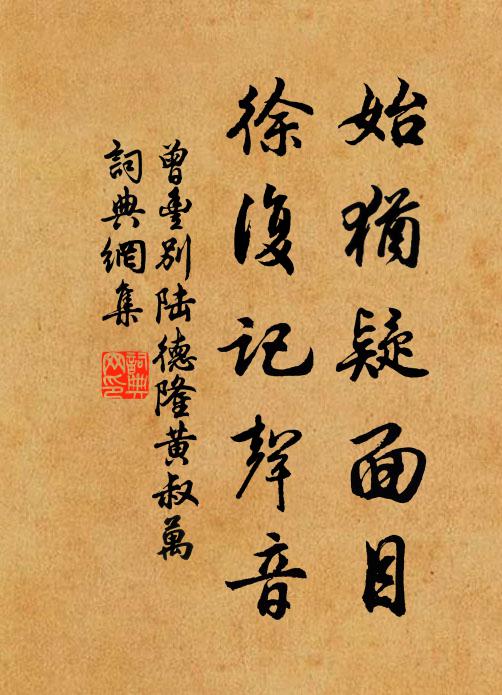 始猶疑面目
徐復記聲音
曾豐別陸德隆黃叔萬
詞典網集
詞典網印